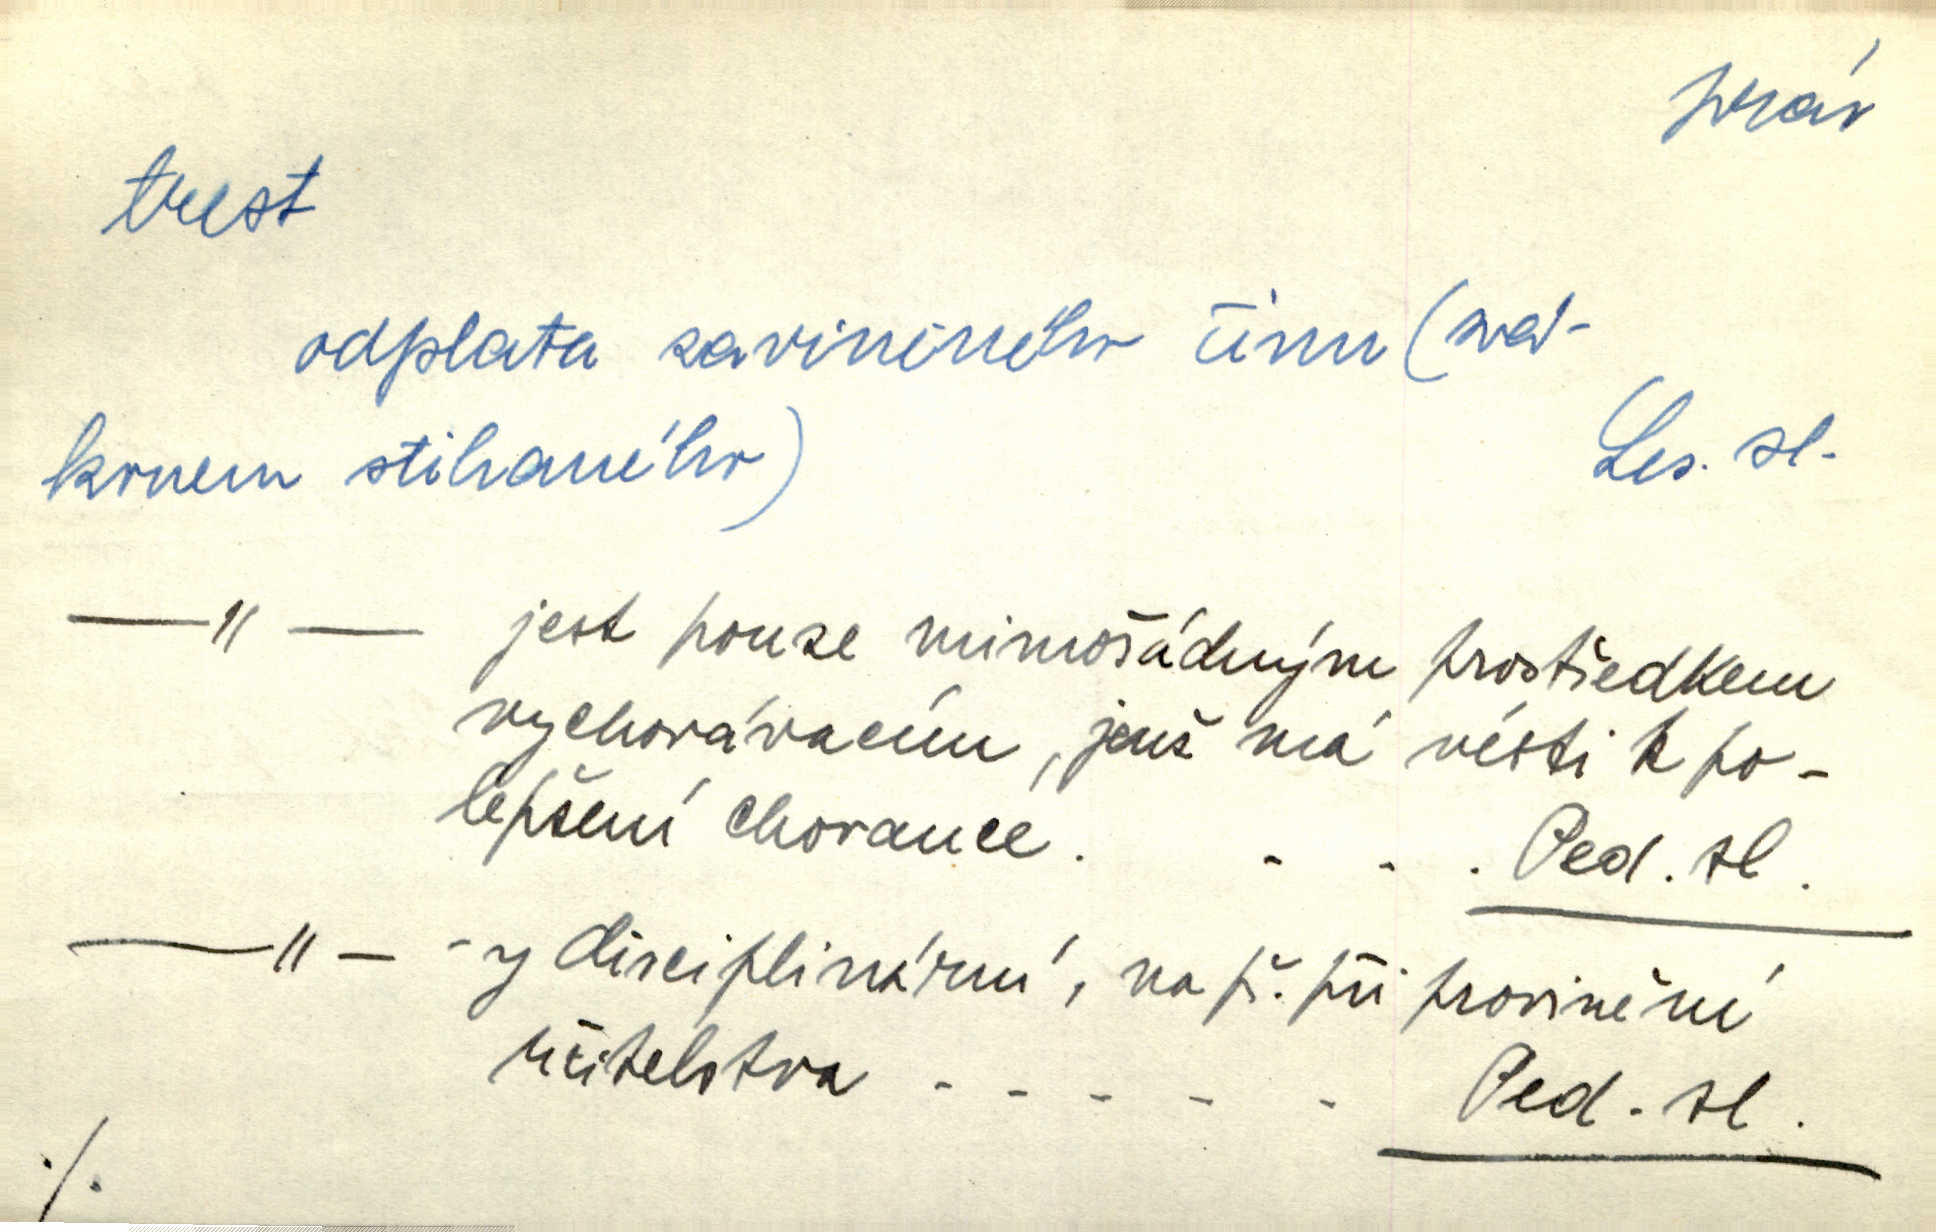 práv
trest
odplata zaviněného činu (zá-
konem stíhaného)
Les. sl.
—"— jest pouze mimořádným prostředkem
vychovávacím, jenž má vésti k po-
lepšení chovance. . . . Ped. sl.
—"— -y disciplinární, na př. při provinění
učitelstva - - - - - Ped. sl.
./.